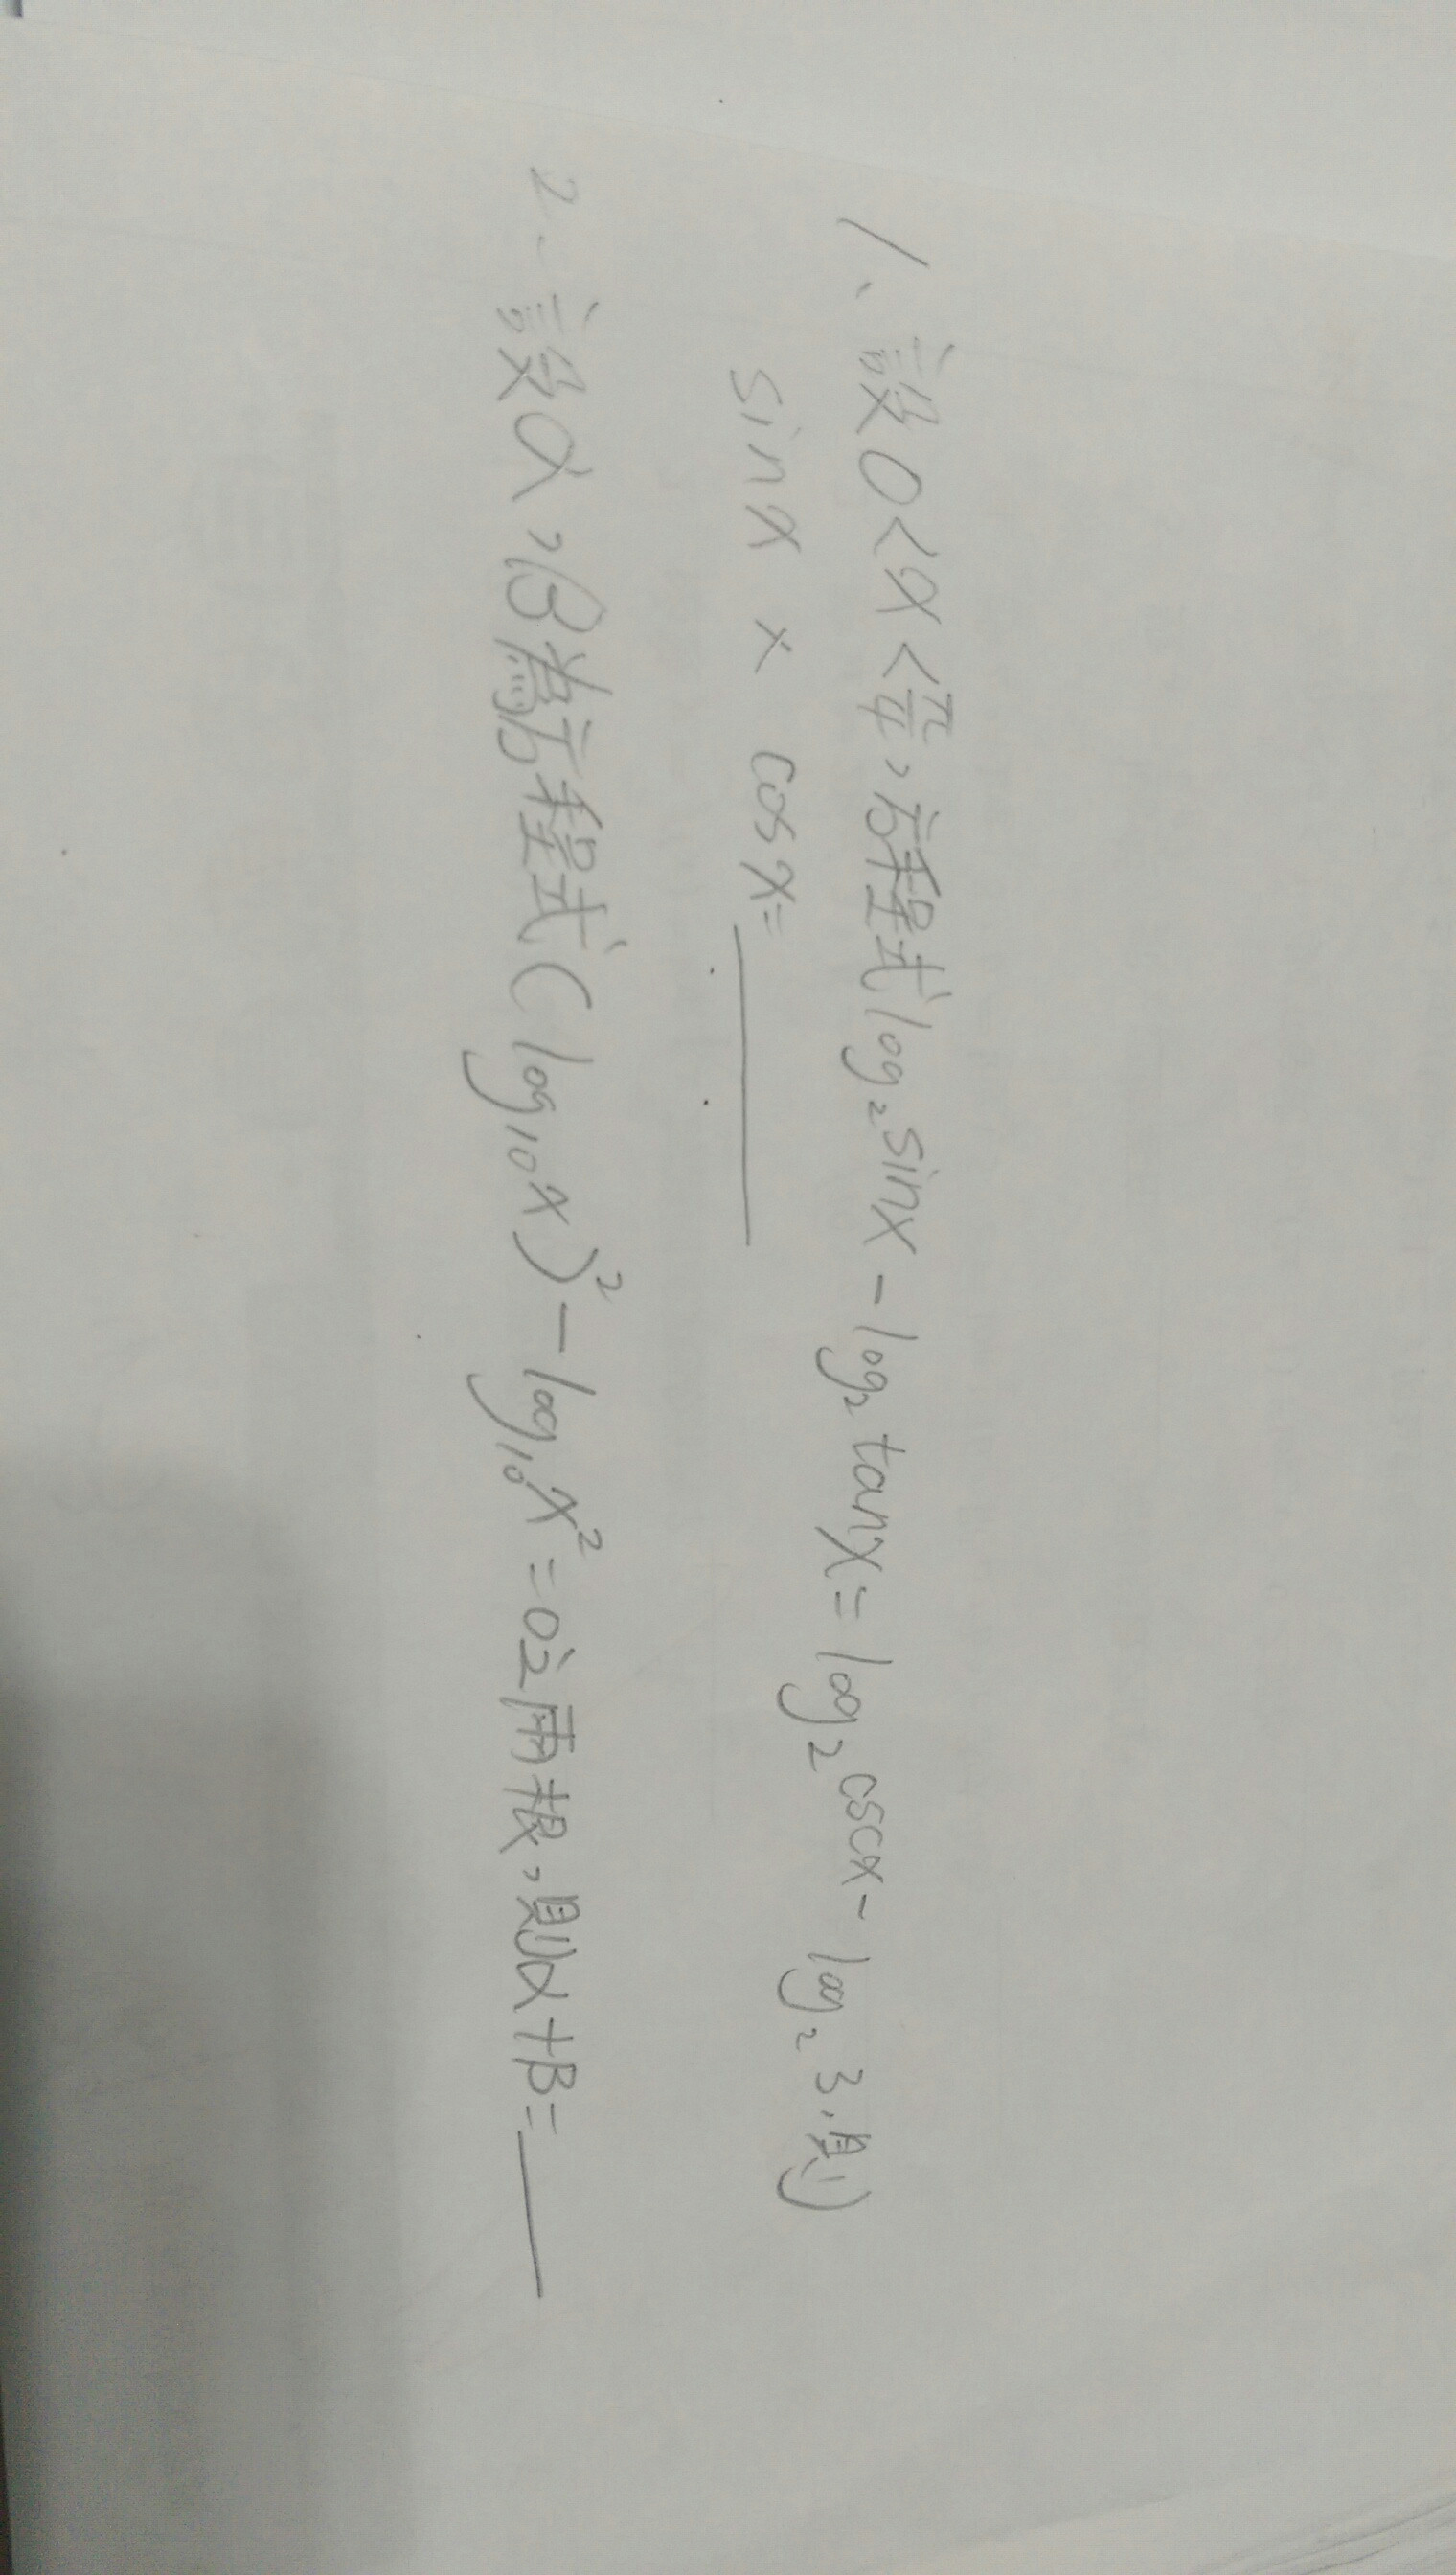 1、設0<x<π/4，方程式log₂sinx-log₂tanx=log₂cscx-log₂3，則
sinx × cosx=
2、設α，β為方程式(log₁₀x)²-log₁₀x²=0之兩根，則α+β=